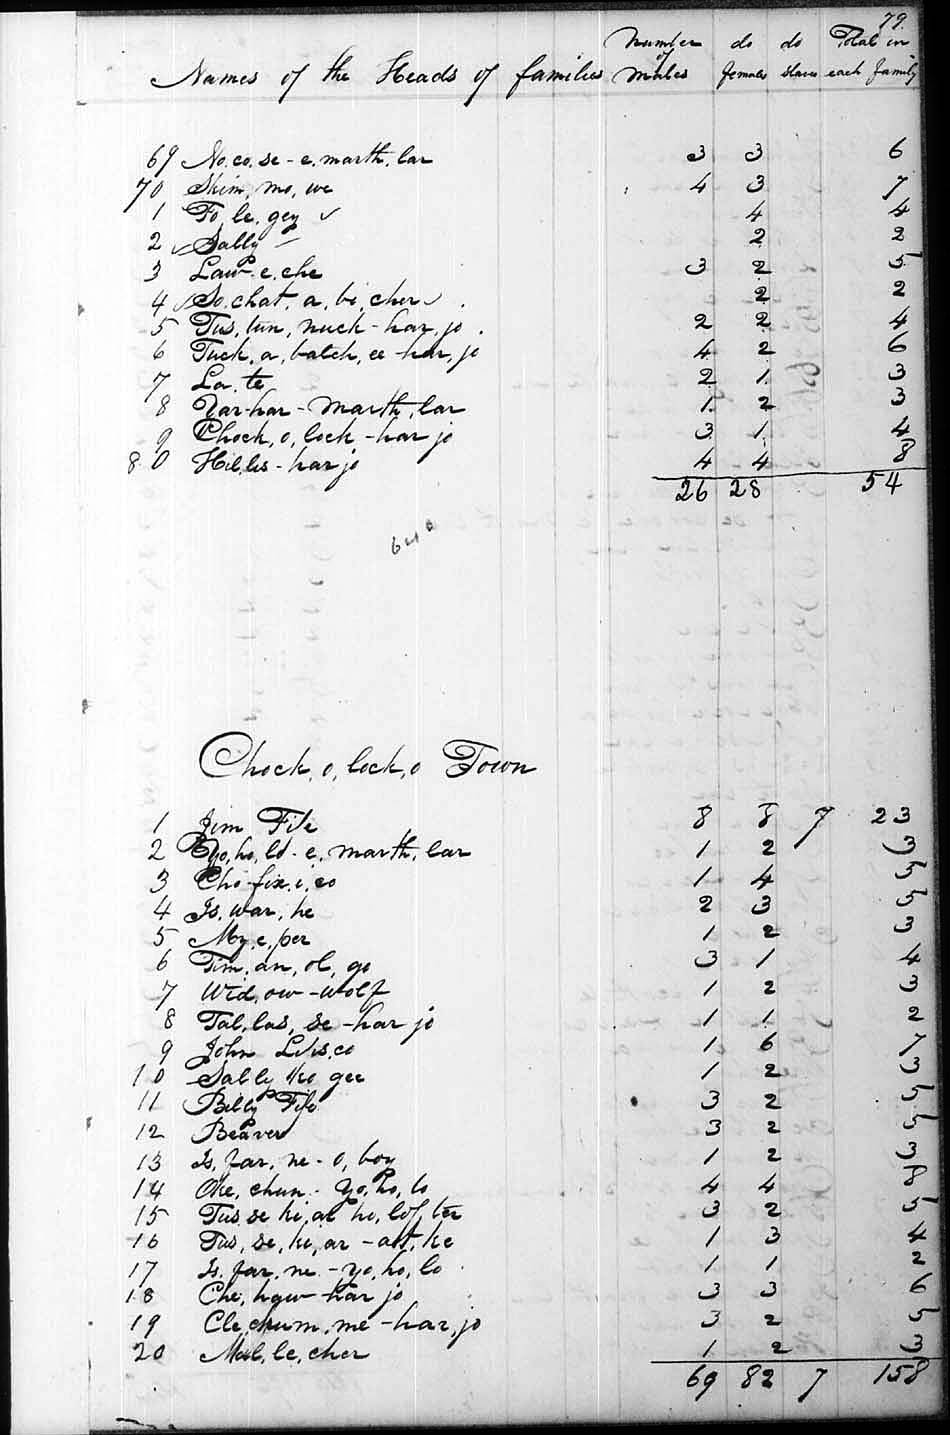 79.
Number of Males do females do slaves Total in each family
Names of the Heads of families
69 No.co.se - e.marth.lar 3 3 6
70 Skim, mo, we 4 3 7
1 Fo, le, gey ✓ 4 4
2 ✓ Sally 2 2
3 Law. e. che 3 2 5
4 ✓ So. chat. a, bi, cher ✓ 2 2
5 Tus, tun, nuck - har, jo 2 2 4
6 Tuck, a, batch, ee - har, jo 4 2 6
7 La. te 2 1 3
8 Yar-har - Marth, lar 1 2 3
9 Chock, o, lock - har jo 3 1 4
80 Hil,lis - har jo 4 4 8
26 28 54
Chock, o, lock, o Town
1 Jim Fife 8 8 7 23
2 Yo, ho, lo - e, marth, lar 1 2 3
3 Cho-fix, i, co 1 4 5
4 Is, war, he 2 3 5
5 My, e, per 1 2 3
6 Tim, an, ol, go 3 1 4
7 Wid, ow - wolf 1 2 3
8 Tal, las, se - har jo 1 1 2
9 John 1 6 7
10 Sally Ko gee 1 2 3
11 Billy Fife 3 2 5
12 Beaver 3 2 5
13 Is, far, ne - o, boy 1 2 3
14 Oke, chun - Yo, ho, lo 4 4 8
15 Tus se ki, ai 3 2 5
16 Tus, se, ki, ar - 1 3 4
17 Is, far, ne - yo, ho, lo 1 1 2
18 Che, haw - har jo 3 3 6
19 Cle chum, me - har, jo 3 2 5
20 Mil, le, cher 1 2 3
69 82 7 158